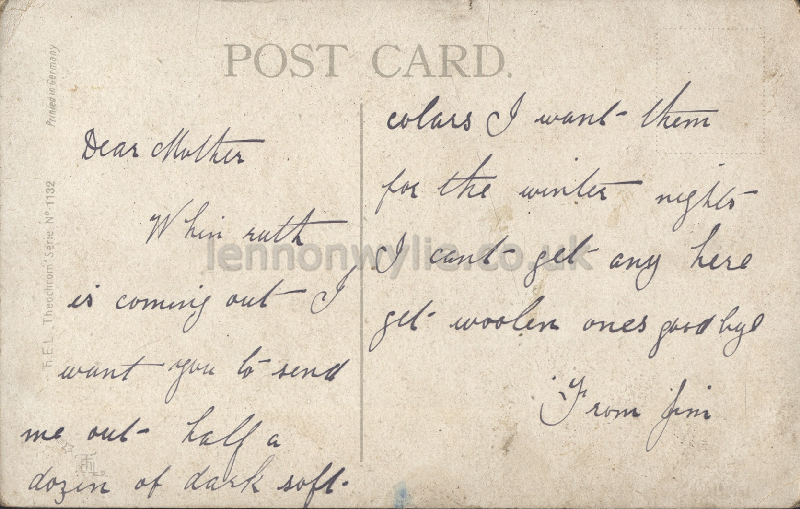 POST CARD.
Printed in Germany
H.E.L. "Theochrom" Serie Nº 1132
Dear Mother
Whin ruth
is coming out I
want you to send
me out half a
dozin of dark soft
colars I want them
for the winter nights
I cant get any here
get woolen ones goodbye
From Jim
lennonwylie.co.uk